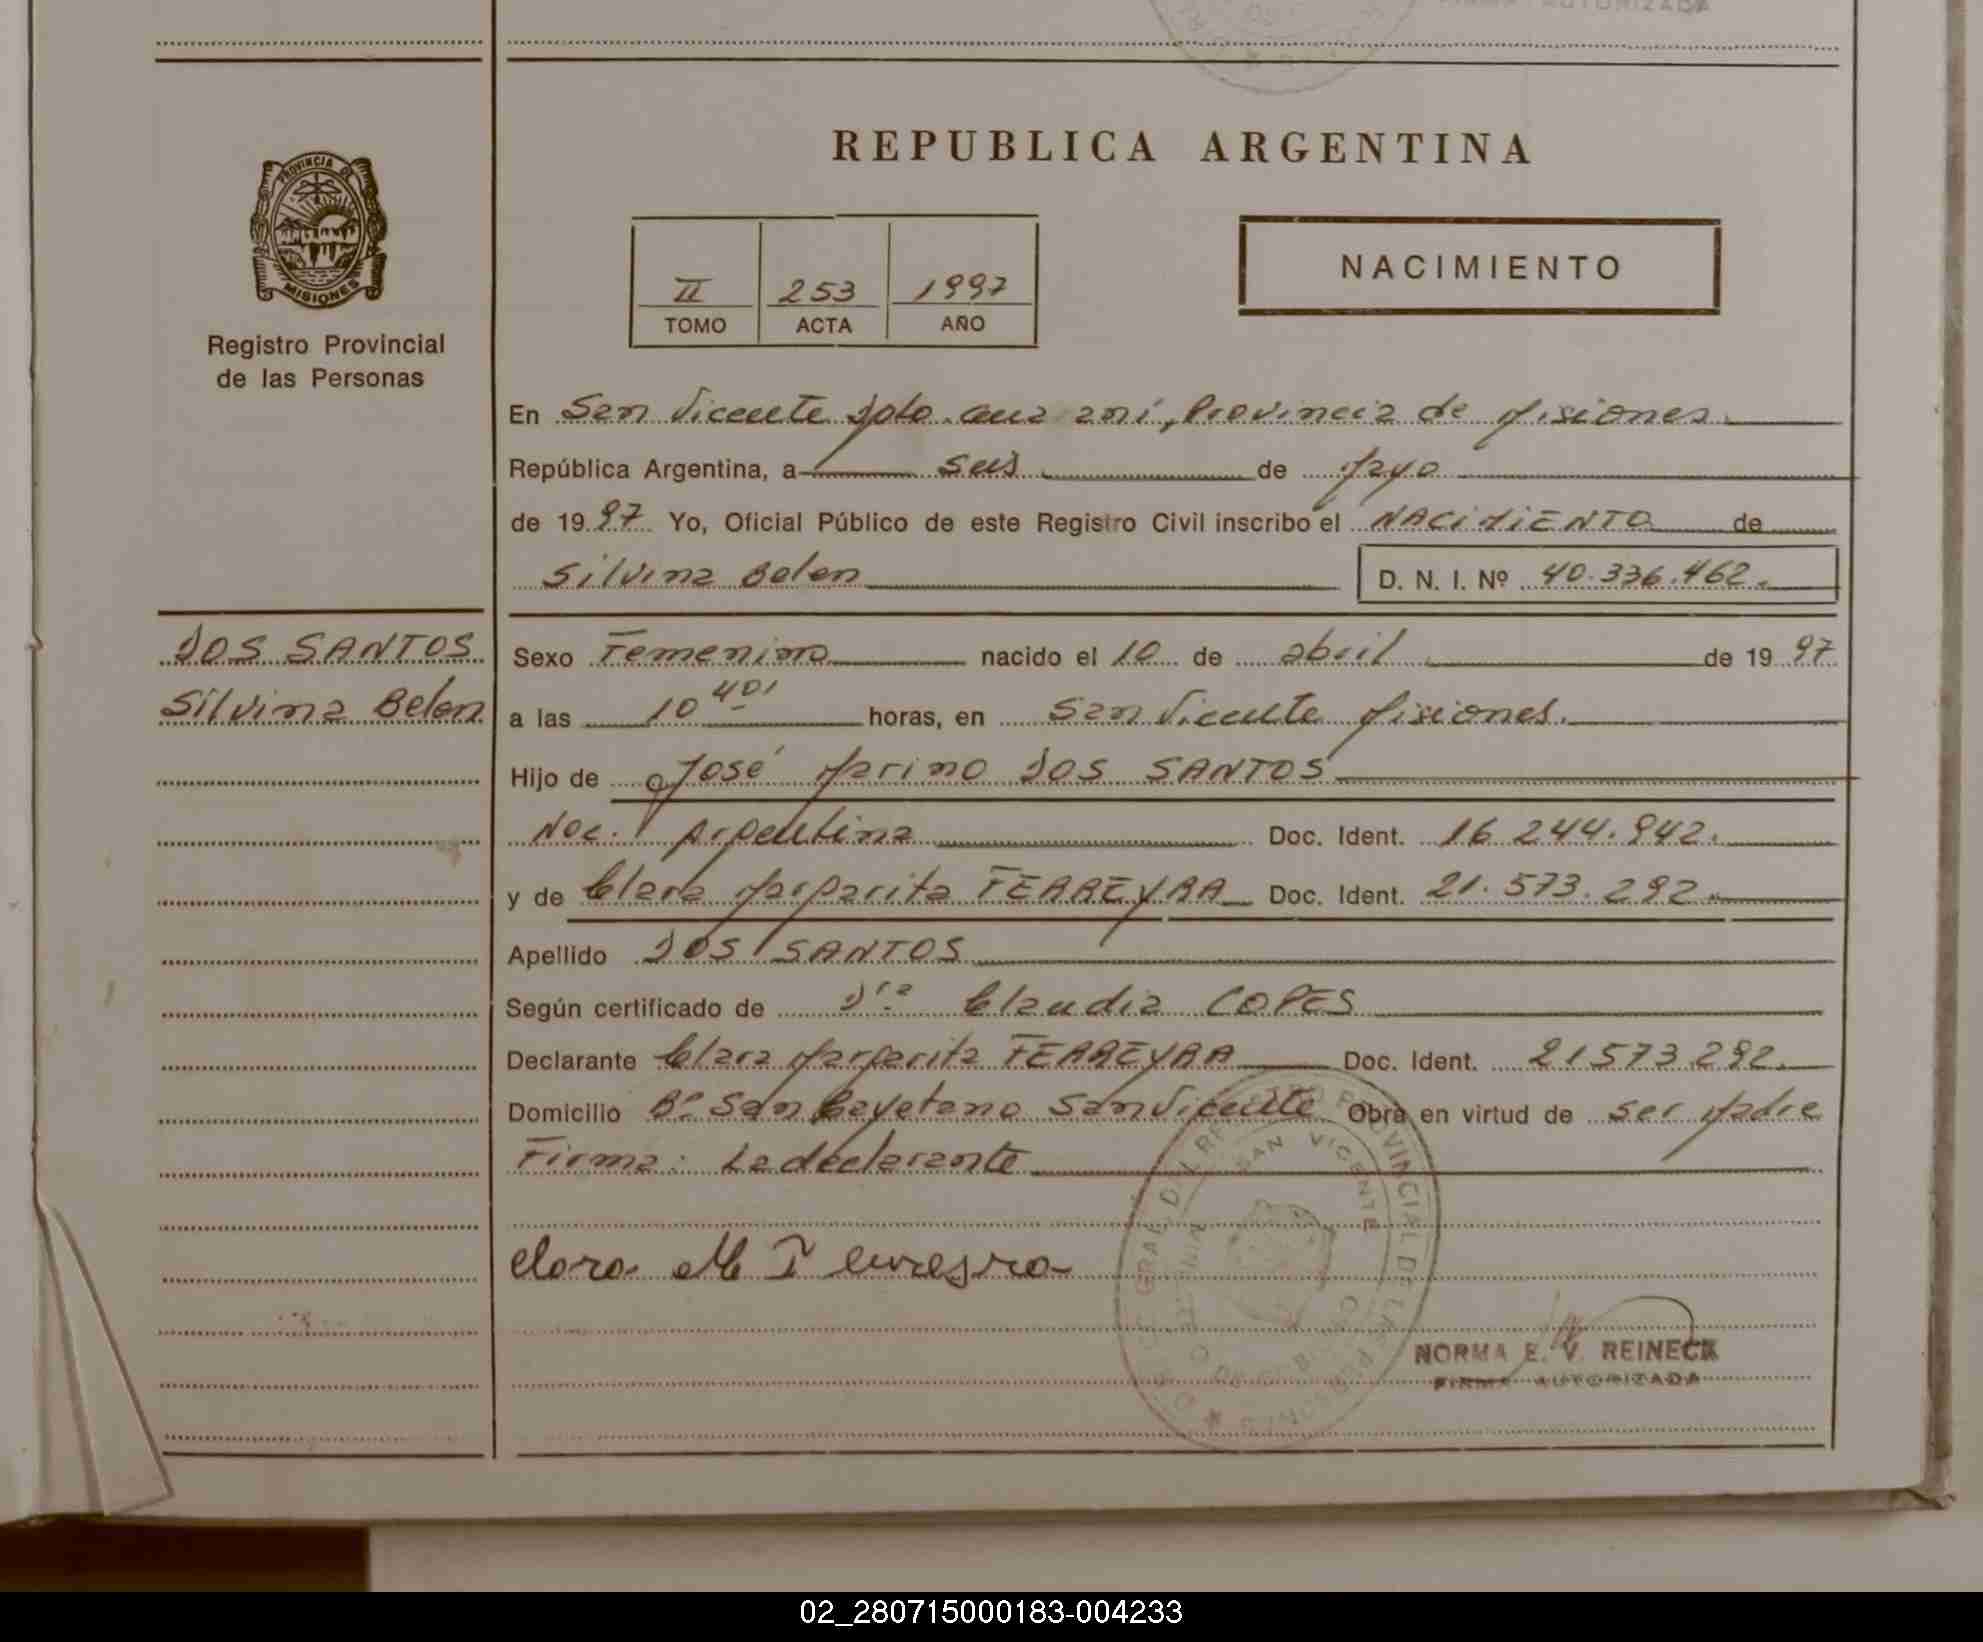 FIRMA AUTORIZADA
REPUBLICA ARGENTINA
PROVINCIA DE
MISIONES
Registro Provincial
de las Personas
II 253 1997
TOMO ACTA AÑO
NACIMIENTO
En San Vicente Dpto. Guaraní, Provincia de Misiones.
República Argentina, a seis de Mayo
de 1997 Yo, Oficial Público de este Registro Civil inscribo el NACIMIENTO de
Silvina Belen D. N. I. Nº 40.336.462.
DOS SANTOS
Silvina Belen
Sexo Femenino nacido el 10 de abril de 1997
a las 10 40' horas, en San Vicente Misiones.
Hijo de José Marino DOS SANTOS
Nac. Argentina Doc. Ident. 16.244.942.
y de Clara Margarita FERREYRA Doc. Ident. 21.573.292.
Apellido DOS SANTOS
Según certificado de Dra Claudia COPES
Declarante Clara Margarita FERREYRA Doc. Ident. 21573.292.
Domicilio Bº San Cayetano San Vicente Obra en virtud de ser Madre
Firma: La declarante
SAN VICENTE
NORMA E. V. REINECK
FIRMA AUTORIZADA
02_280715000183-004233